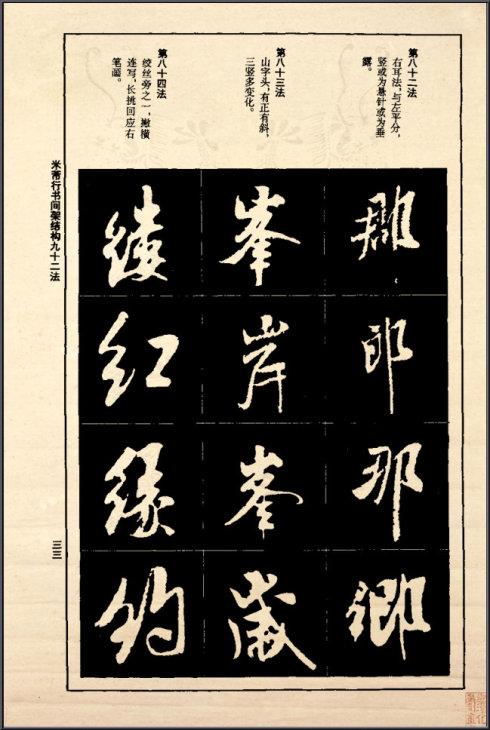 第八十二法
右耳法，与左平分，
竖或为悬针或为垂
露。
郡
郎
那
卿
第八十三法
山字头，有正有斜，
三竖多变化。
峯
岸
峯
歲
第八十四法
绞丝旁之一，撇横
连写，长挑回应右
笔画。
红
缘
约
米芾行书间架结构九十二法
三三